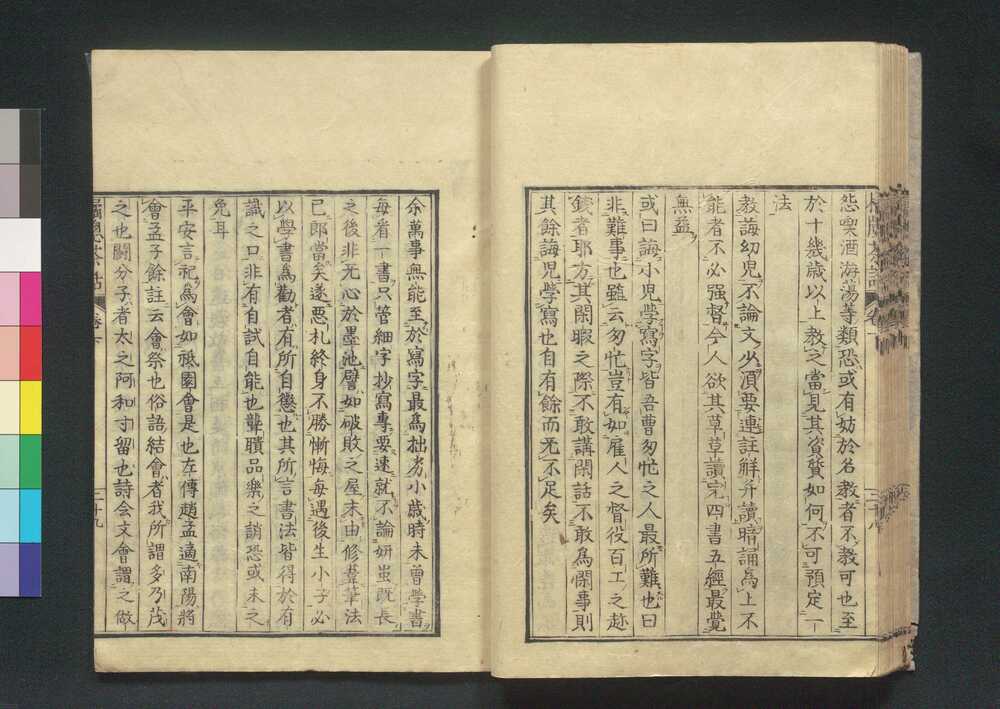 怨喫酒海蕩等類恐或有妨於名教者不教可也至
於十幾歳以上教之當見其資質如何不可預定一
法
教誨幼児不論文必須要連註解并讀暗誦為上不
能者不必强督今人欲其草草讀完四書五經最覺
無益
或曰誨小児學寫字皆吾曹匆忙之人最所難也曰
非難事也雖云匆忙豈有如雇人之督役百工之趂
錢者耶方其閑暇之際不敢講閑話不敢為閑事則
其餘誨児學寫也自有餘而无不足矣
三十八
余萬事無能至於寫字最為拙劣小歳時未曾學書
毎看一書只管細字抄寫專要速就不論妍蚩既長
之後非无心於墨池譬如破敗之屋末由修葺筆法
已郎當矣遂惡札終身不勝慚悔毎遇後生小子必
以學書為勸者有所自懲也其所言書法皆得於有
識之口非有自試自能也聾聵品樂之誚恐或未之
免耳
平安言祀為會如祗園會是也左傳趙孟適南陽將
會孟子餘註云會祭也俗語結會者我所謂多乃茂
之也闘分子者太之阿和寸留也詩会文會謂之做
橘窓茶話
三十九